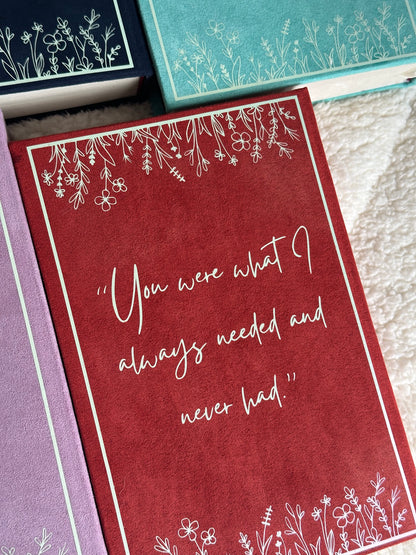 "You were what I
always needed and
never had."